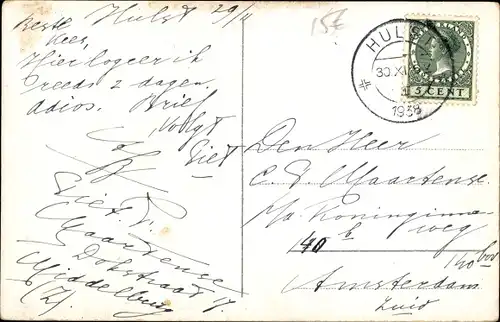 Hulst 29/11
Beste
Kees,
Hier logeer ik
reeds 2 dagen.
Adios. Brief
volgt
Piet
Piet. J.
Maartense
Dokstraat 17.
Middelburg
(Z)
15€
HULST
30.XI
1938
5 CENT
Den Heer
C. J. Maartense.
p/a Koninginne-
weg
140 bov
Amsterdam
Zuid